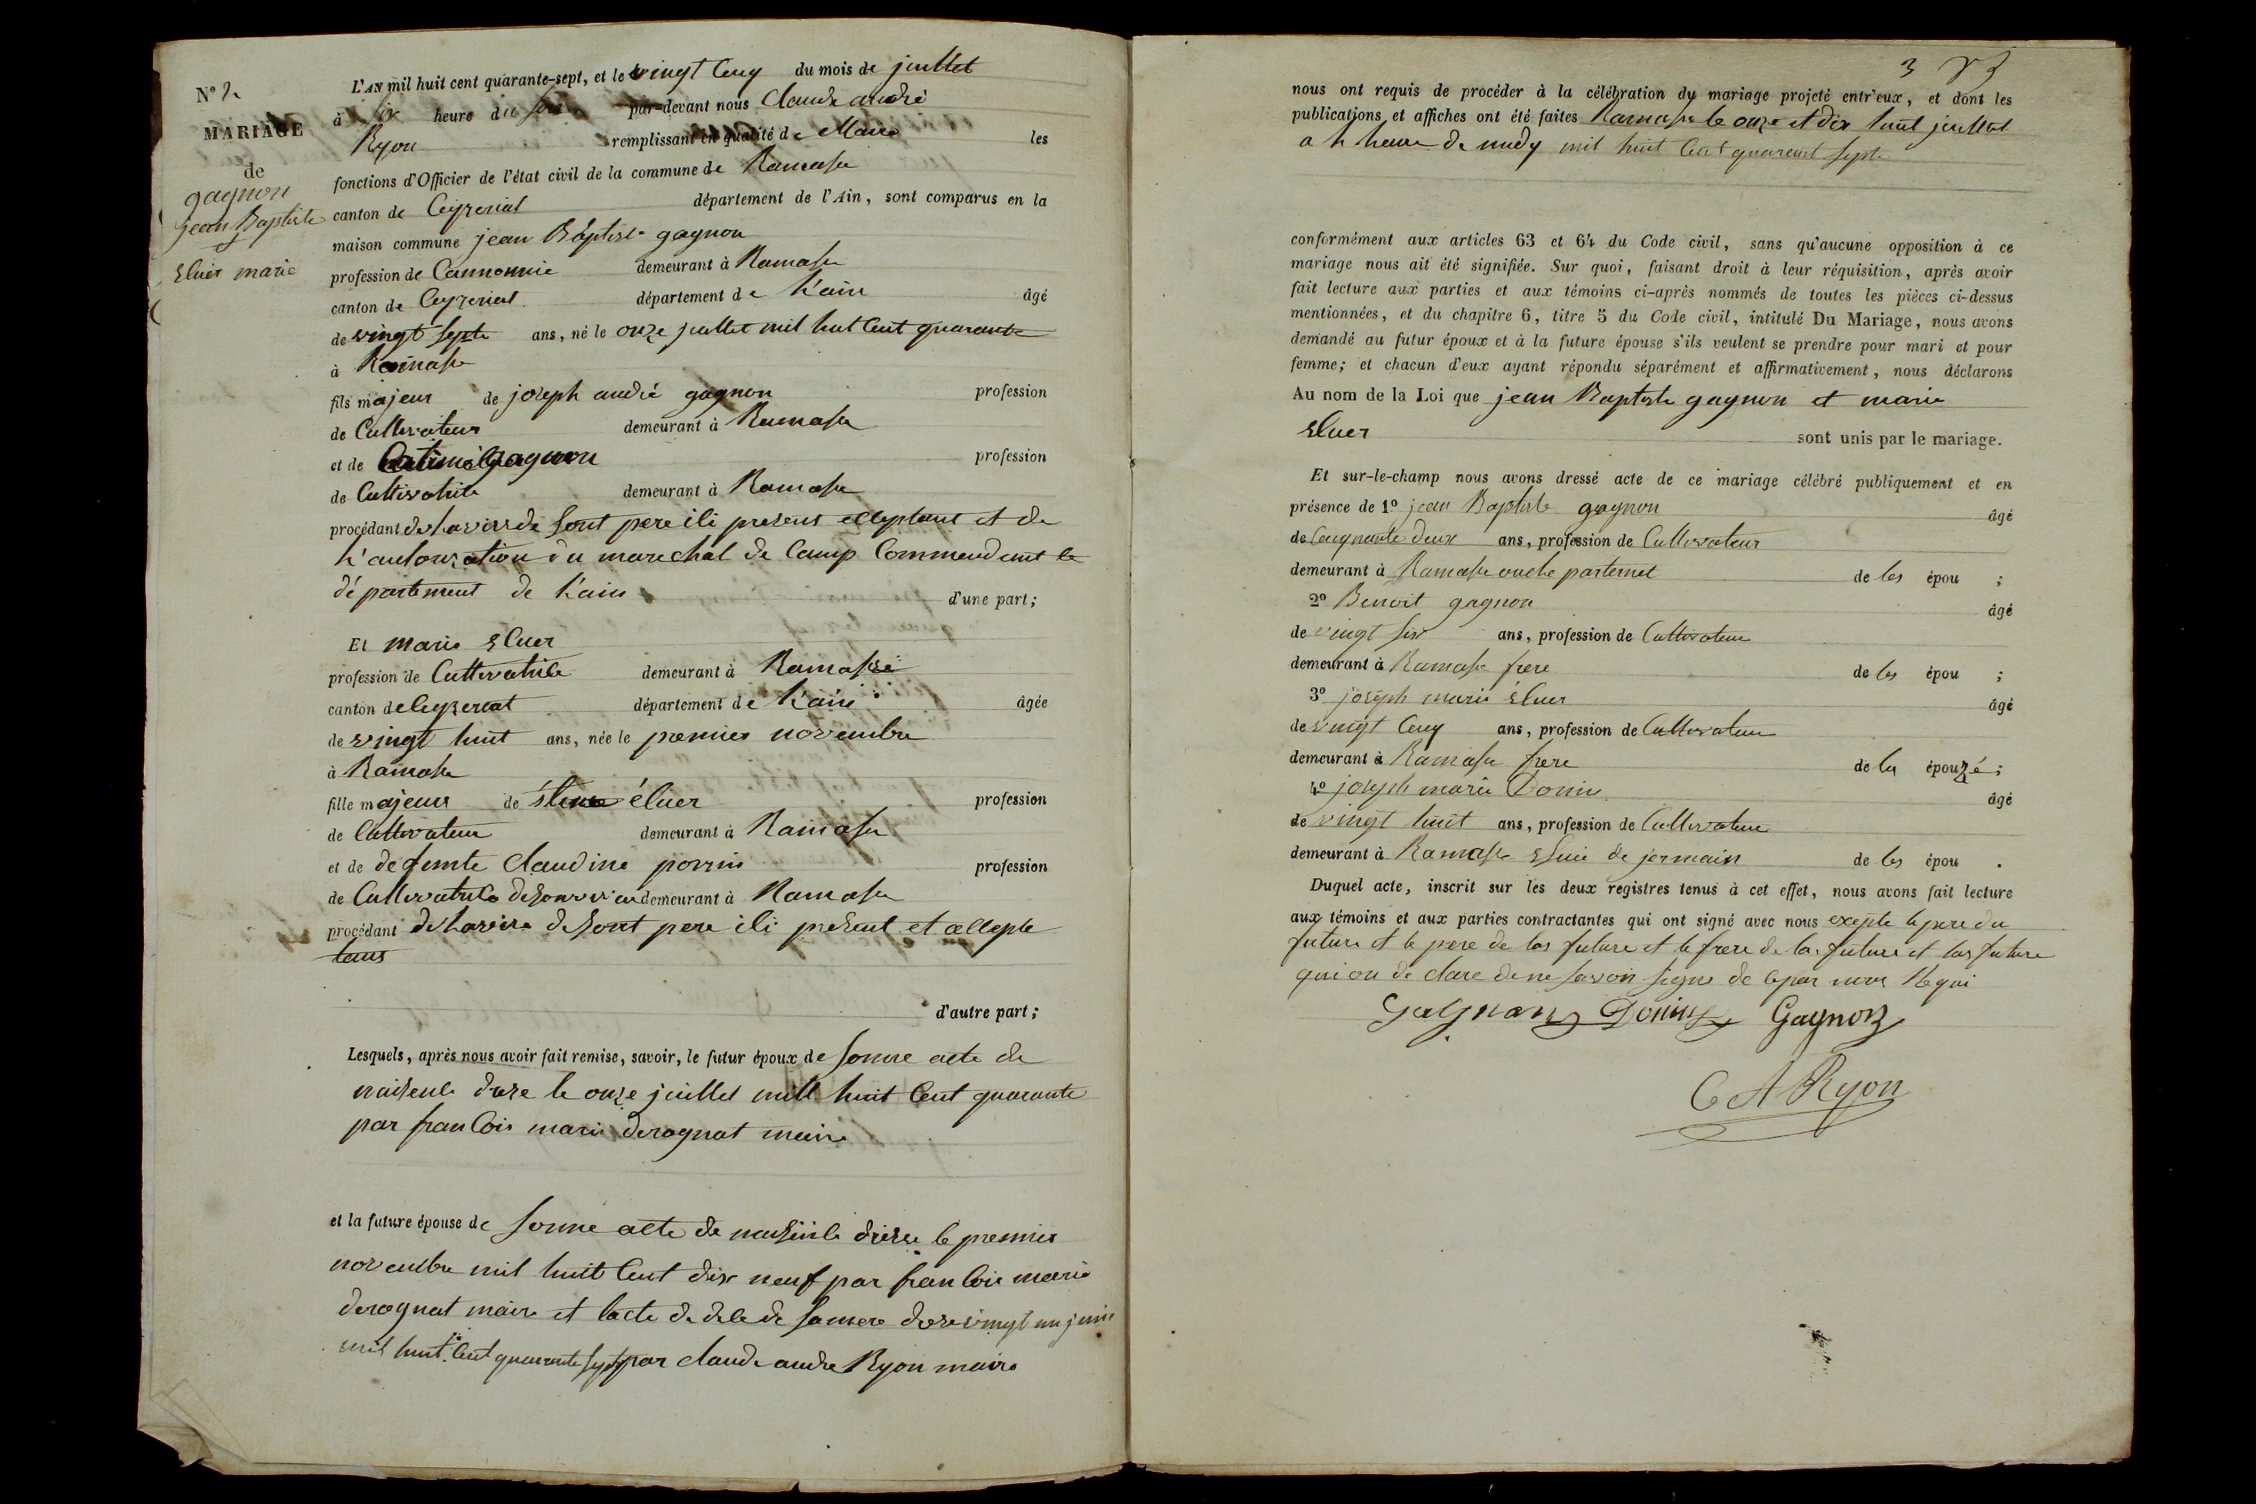 N° 2
MARIAGE
de
gagnon
jean Baptiste
Eluer marie
L'AN mil huit cent quarante-sept, et le vingt Cinq du mois de juillet
à Six heure du soir par-devant nous Claude andré
Ryon remplissant en qualité de Maire les
fonctions d'Officier de l'état civil de la commune de Ramasse
canton de Ceyzeriat département de l'Ain, sont comparus en la
maison commune jean Baptiste gagnon
profession de Cannonnie demeurant à Ramasse
canton de Ceyzeriat département de l'ain âgé
de vingt sept ans, né le onze juillet mil huit Cent quarante
à Ramasse
fils majeur de joseph andré gagnon profession
de Cultivateur demeurant à Ramasse
et de gagnon profession
de Cultivatrice demeurant à Ramasse
procédant de Lavis de sont pere ili present acceptant et de
l'autorization du marechal de Camp Commendent le
département de l'ain d'une part;
Et marie Eluer
profession de Cultivatrice demeurant à Ramasse
canton de Ceyzeriat département de l'ain âgée
de vingt huit ans, née le premier novembre
à Ramasse
fille majeur de éluer profession
de Cultivateur demeurant à Ramasse
et de defeunte Claudine perrin profession
de Cultivatrice de son vivan demeurant à Ramasse
procédant de Lavis de sont pere ili present et accepte
tant
d'autre part;
Lesquels, après nous avoir fait remise, savoir, le futur époux de sonne acte de
naisence drese le onze juillet mill huit Cent quarante
par francois marie derognat maire
et la future épouse de sonne acte de naisence drese le premier
novembre mil huit Cent dix neuf par francois marie
derognat maire et lacte de dele de samere drese vingt un juin
mil huit Cent quarante sept par claude andre Ryon maire
3
nous ont requis de procéder à la célébration du mariage projeté entr'eux, et dont les
publications et affiches ont été faites Ramasse le onze et dix huit juillet
a l heure de midy mil huit Cent quarant sept
conformément aux articles 63 et 64 du Code civil, sans qu'aucune opposition à ce
mariage nous ait été signifiée. Sur quoi, faisant droit à leur réquisition, après avoir
fait lecture aux parties et aux témoins ci-après nommés de toutes les pièces ci-dessus
mentionnées, et du chapitre 6, titre 5 du Code civil, intitulé Du Mariage, nous avons
demandé au futur époux et à la future épouse s'ils veulent se prendre pour mari et pour
femme; et chacun d'eux ayant répondu séparément et affirmativement, nous déclarons
Au nom de la Loi que jean Baptiste gagnon et marie
Eluer sont unis par le mariage.
Et sur-le-champ nous avons dressé acte de ce mariage célébré publiquement et en
présence de 1° jean Baptiste gagnon âgé
de Cinquante deux ans, profession de Cultivateur
demeurant à Ramasse oncle parternel de les épou ;
2° Benoit gagnon âgé
de vingt six ans, profession de Cultivateur
demeurant à Ramasse frere de les épou ;
3° joseph marie éluer âgé
de vingt Cinq ans, profession de Cultivateur
demeurant à Ramasse frere de les épouzé ;
4° joseph marie Donin âgé
de vingt huit ans, profession de Cultivateur
demeurant à Ramasse de jermain de les épou .
Duquel acte, inscrit sur les deux registres tenus à cet effet, nous avons fait lecture
aux témoins et aux parties contractantes qui ont signé avec nous exepte le pere du
future et le pere de las future et le frere de las future et las future
qui on de clare de ne savoir signe de
Gagnon Donin Gagnon
C A Ryon